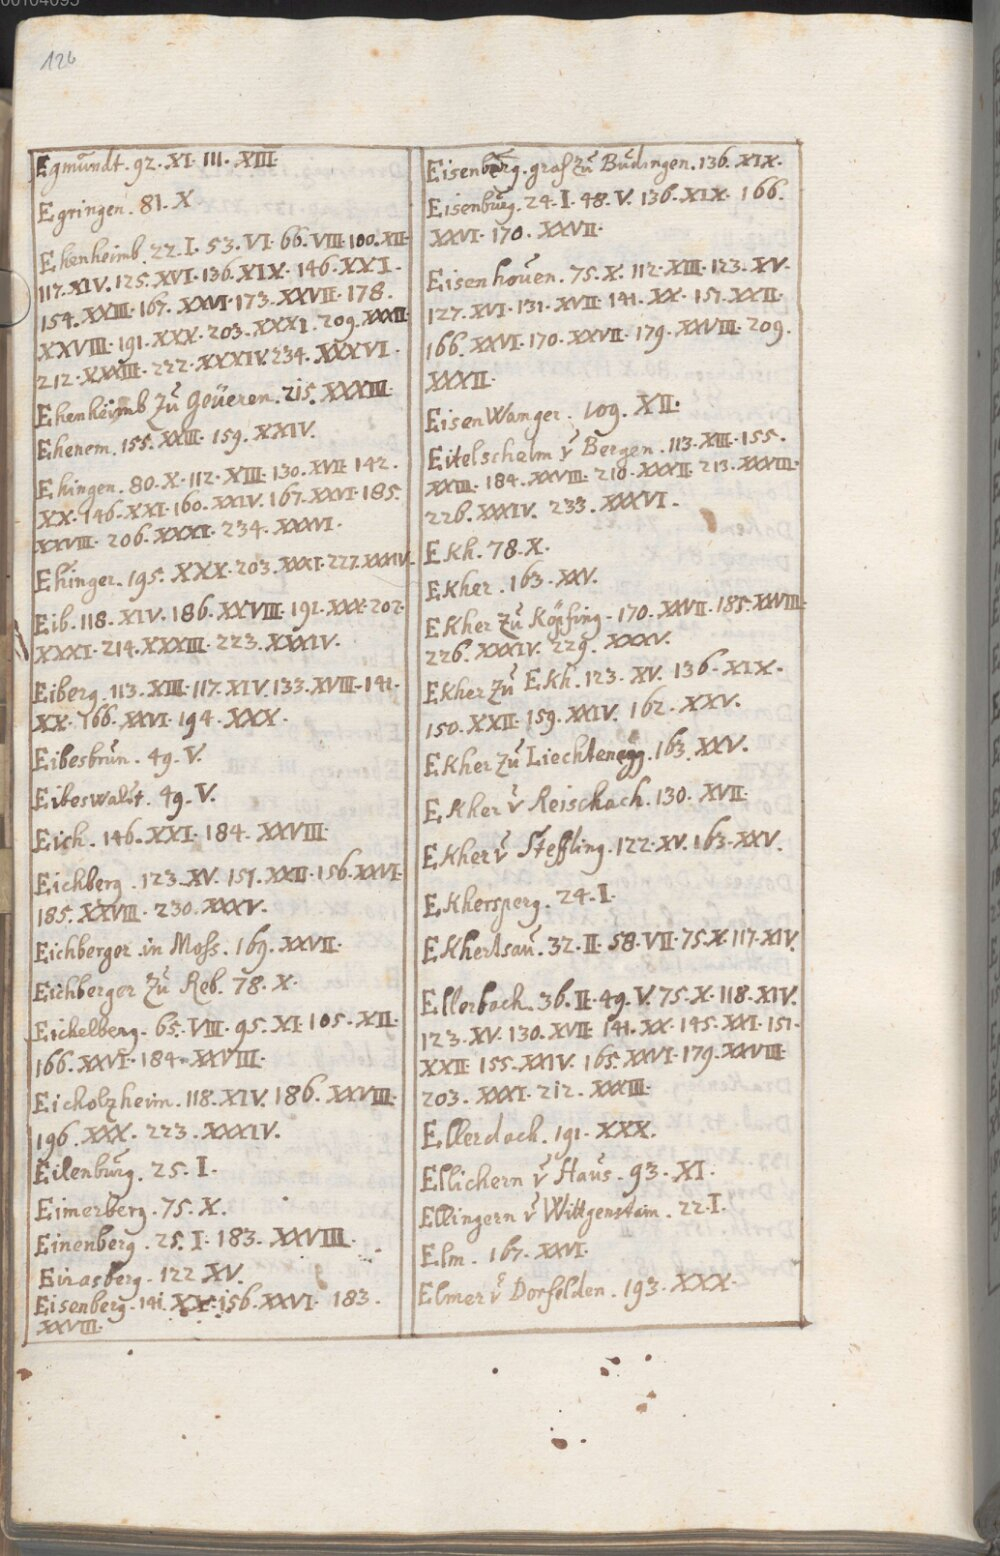 00104095
126
Egmŭndt. 92. XI. 111. XIII.
Egringen. 81. X
Ehenheimb. 22. I. 53. VI. 66. VIII. 100. XII.
117. XIV. 125. XVI. 136. XIX. 146. XXI.
154. XXIII. 167. XXVI. 173. XXVII. 178.
XXVIII. 191. XXX. 203. XXXI. 209. XXXII
212. XXXIII. 222. XXXIV. 234. XXXVI.
Ehenheimb Zŭ Geŭeren. 215. XXXIII.
Ehenem. 155. XXIII. 159. XXIV.
Ehingen. 80. X. 112. XIII. 130. XVII. 142.
XX. 146. XXI. 160. XXIV. 167. XXVI. 185.
XXVIII. 206. XXXI. 234. XXXVI.
Ehinger. 195. XXX. 203. XXXI. 227. XXXIV.
Eib. 118. XIV. 186. XXVIII. 191. XXX. 202.
XXXI. 214. XXXIII. 223. XXXIV.
Eiberg. 113. XIII. 117. XIV. 133. XVIII. 141.
XX. 166. XXVI. 194. XXX.
Eibesbrŭn. 49. V.
Eibeswaldt. 49. V.
Eich. 146. XXI. 184. XXVIII.
Eichberg. 123. XV. 151. XXII. 156. XXVI.
185. XXVIII. 230. XXXV.
Eichberger in Moss. 169. XXVII.
Eichberger Zŭ Reb. 78. X.
Eickelberg. 65. VIII. 95. XI. 105. XII.
166. XXVI. 184. XXVIII.
Eicholzheim. 118. XIV. 186. XXVIII.
196. XXX. 223. XXXIV.
Eilenbŭrg. 25. I.
Eimerberg. 75. X.
Einenberg. 25. I. 183. XXVIII.
Eirasberg. 122 XV.
Eisenberg. 141. XX. 156. XXVI. 183.
XXVIII.
Eisenbŭrg. graf zŭ Bŭdingen. 136. XIX.
Eisenbŭrg. 24. I. 48. V. 136. XIX. 166.
XXVI. 170. XXVII.
Eisenhoŭen. 75. X. 112. XIII. 123. XV.
127. XVI. 131. XVII. 141. XX. 151. XXII.
166. XXVI. 170. XXVII. 179. XXVIII. 209.
XXXII.
EisenWanger. 109. XII.
Eitelschelm v Bergen. 113. XIII. 155.
XXIII. 184. XXVIII. 210. XXXII. 213. XXXIII.
226. XXXIV. 233. XXXVI.
Ekh. 78. X.
Ekher. 163. XXV.
Ekher Zŭ Köpfing. 170. XXVII. 185. XXVIII
226. XXXIV. 229. XXXV.
Ekher Zŭ Ekh. 123. XV. 136. XIX.
150. XXII. 159. XXIV. 162. XXV.
Ekher zŭ Liechtenegg. 163. XXV.
Ekher v Reischach. 130. XVII.
Ekher v Steffling. 122. XV. 163. XXV.
Ekhersperg. 24. I.
Ekhertsaŭ. 32. II. 58. VII. 75. X. 117. XIV.
Ellerbach. 36. II. 49. V. 75. X. 118. XIV.
123. XV. 130. XVII. 141. XX. 145. XXI. 151.
XXII. 155. XXIV. 165. XXVI. 179. XXVIII.
203. XXXI. 212. XXXIII.
Ellerdach. 191. XXX.
Ellichern v Haŭs. 93. XI.
Ellingern v Wittgenstain. 22. I.
Elm. 167. XXVI.
Elmer v Dorfelden. 193. XXX.